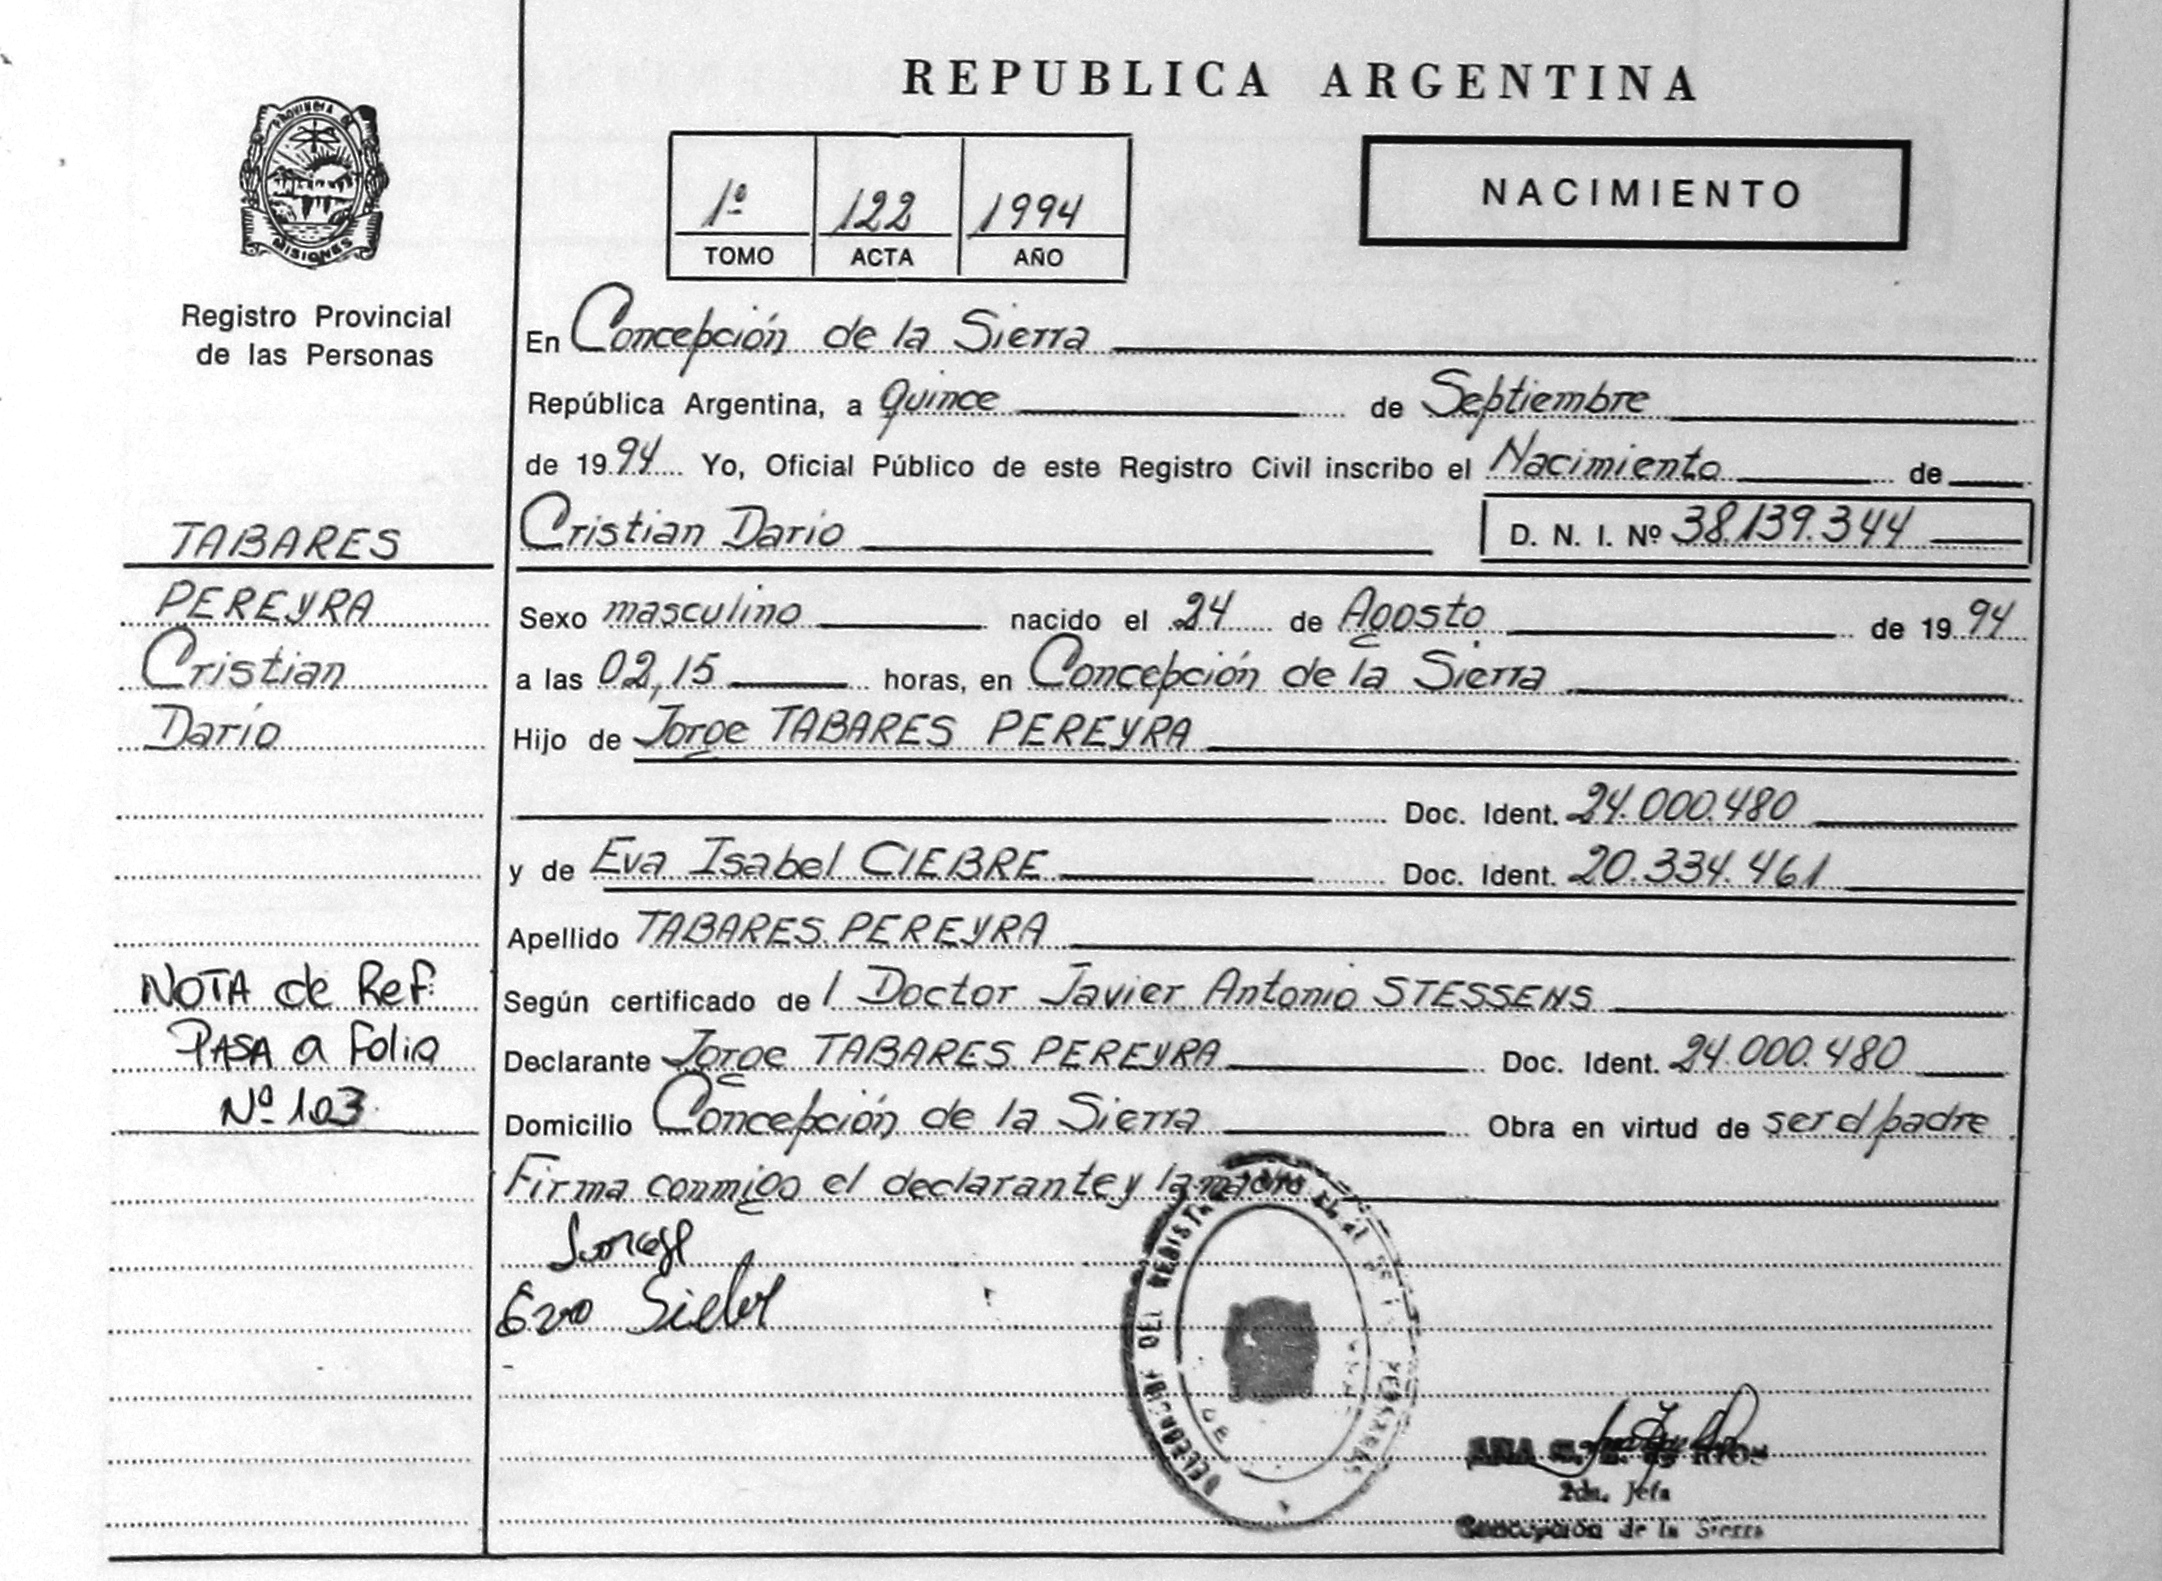 REPUBLICA ARGENTINA
PROVINCIA DE
MISIONES
Registro Provincial
de las Personas
1º 122 1994
TOMO ACTA AÑO
NACIMIENTO
En Concepción de la Sierra
República Argentina, a quince de Septiembre
de 1994 Yo, Oficial Público de este Registro Civil inscribo el Nacimiento de
Cristian Darío D. N. I. Nº 38.139.344
TABARES
PEREYRA
Cristian
Darío
Sexo masculino nacido el 24 de Agosto de 1994
a las 02,15 horas, en Concepción de la Sierra
Hijo de Jorge TABARES PEREYRA
Doc. Ident. 24.000.480
y de Eva Isabel CIEBRE Doc. Ident. 20.334.461
Apellido TABARES PEREYRA
Según certificado de l Doctor Javier Antonio STESSENS
Declarante Jorge TABARES PEREYRA Doc. Ident. 24.000.480
Domicilio Concepción de la Sierra Obra en virtud de ser el padre
Firma conmigo el declarante y la madre
NOTA de Ref:
PASA a Folio
Nº 103
DEL REGISTRO
DE
ANA RIOS
2da. Jefa
Concepción de la Sierra